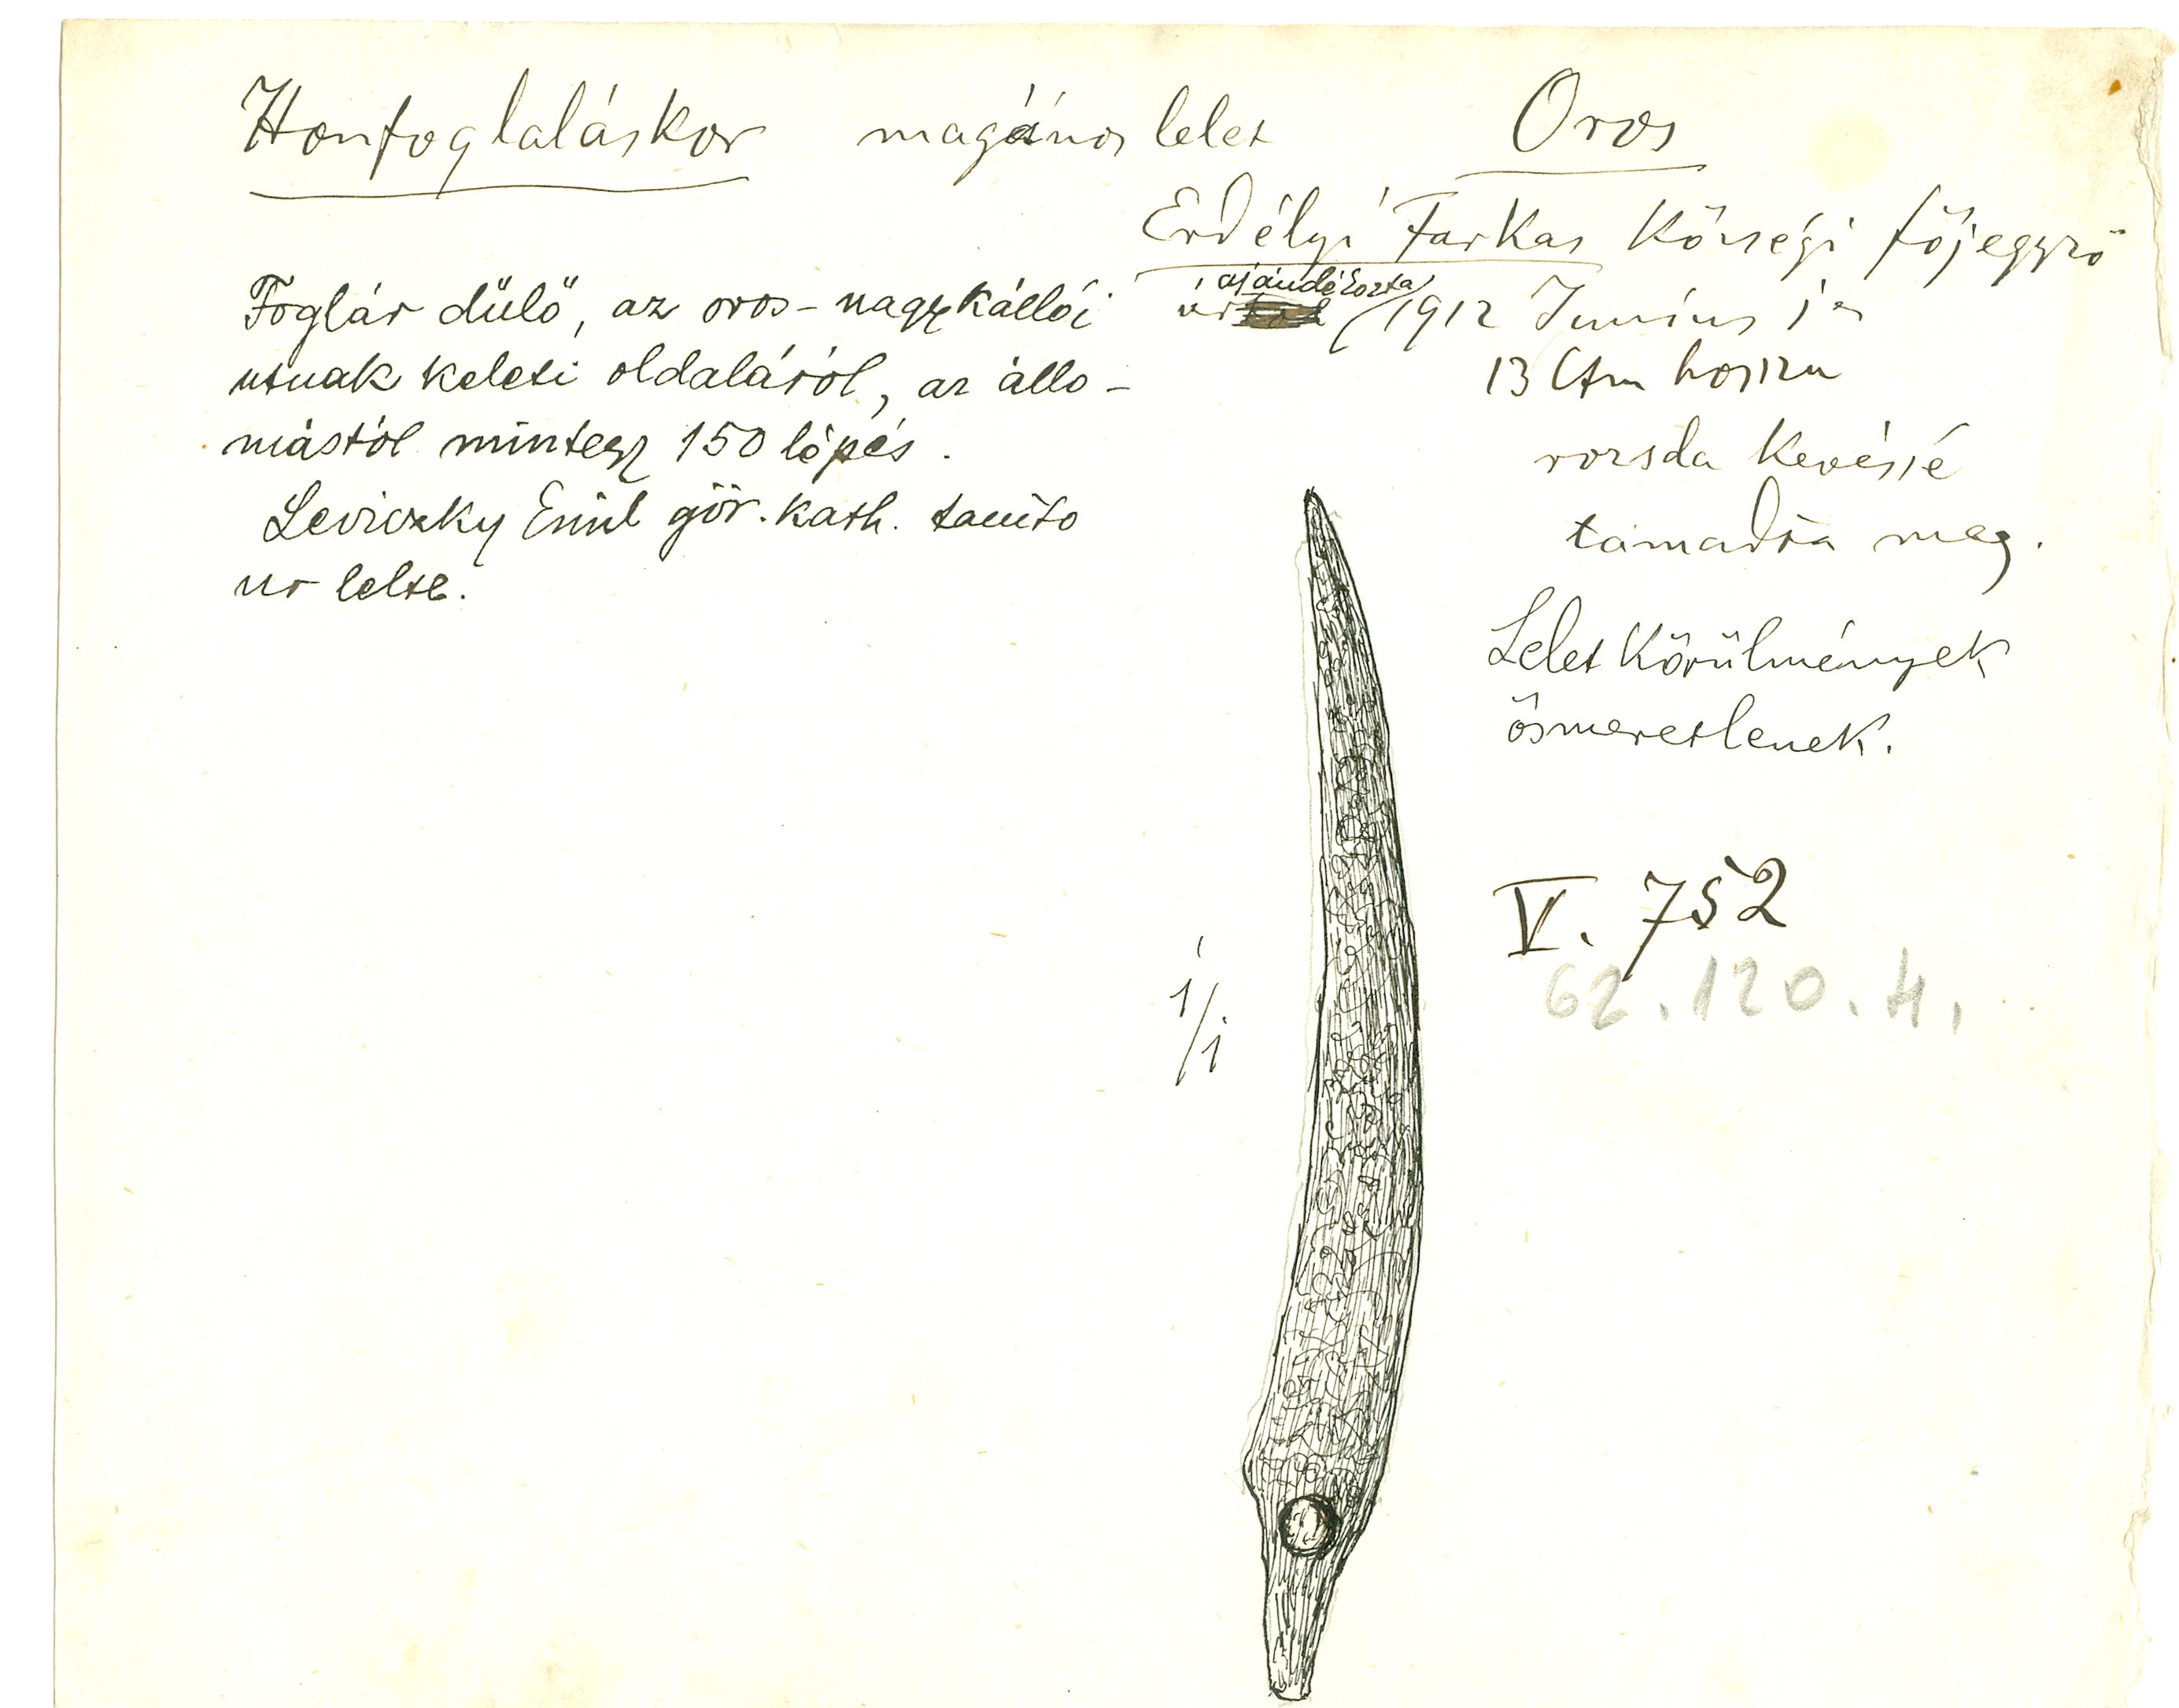 Honfoglaláskor magános lelet Oros
Erdélyi Farkas Községi főjegyző
úr ajándékozta 1912 Junius
13 Ctm hosszu
rozsda kevéssé
támadta meg.
Lelet körülmények
ösmeretlenek.
V. 752
62.120.4.
1/1
Foglár dülő, az oros-nagykállói
utnak keleti oldaláról, az állo-
mástól mintegy 150 lépés.
Leviczky Emil gör. kath. tanito
ur lelte.